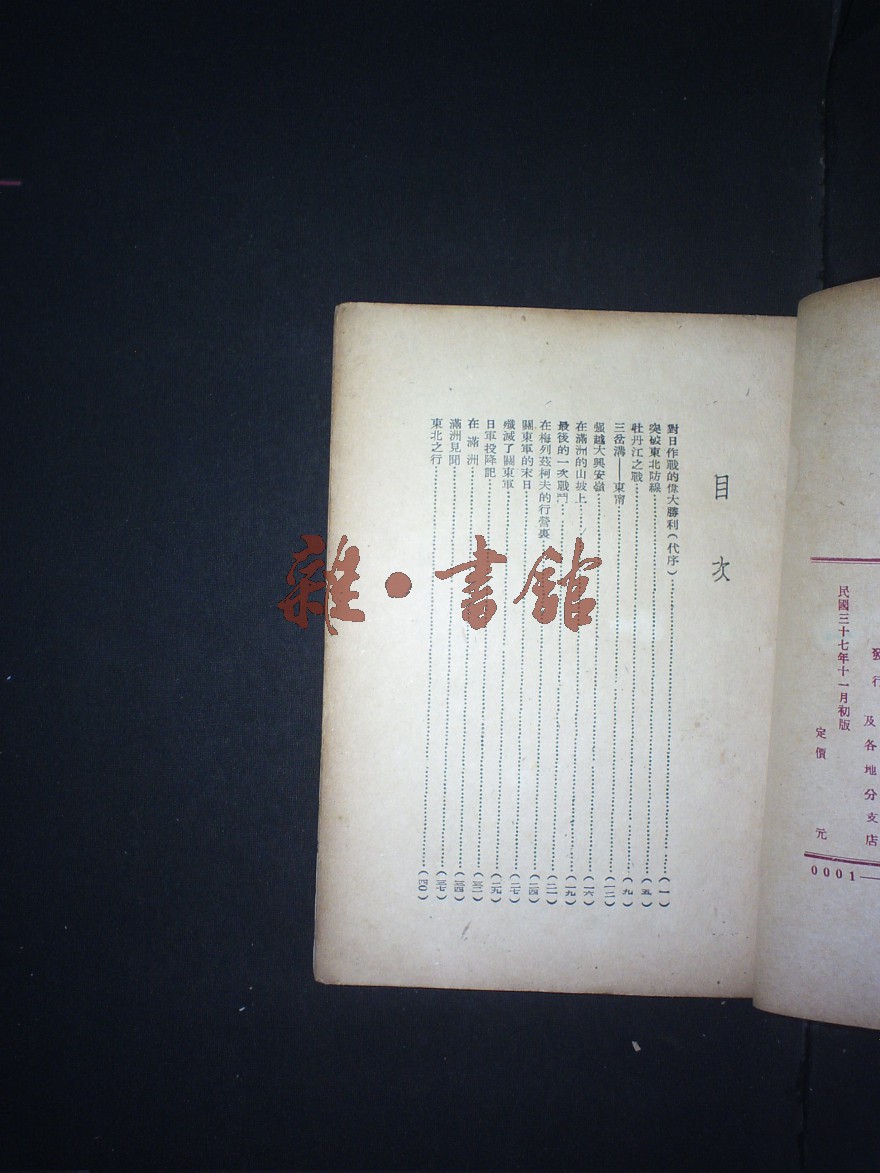 發行 及各地分支店
民國三十七年十一月初版
定價 元
0001—
目次
對日作戰的偉大勝利(代序)…………(一)
突破東北防線…………(五)
牡丹江之戰…………(九)
三岔溝——東甯…………(一二)
强越大興安嶺…………(一六)
在滿洲的山坡上…………(一九)
最後的一次戰鬥…………(二一)
在梅列茲柯夫的行營裏…………(二四)
關東軍的末日…………(二七)
殲滅了關東軍…………(二九)
日軍投降記…………(三二)
在滿洲…………(三四)
滿洲見聞…………(三七)
東北之行…………(四〇)
雜·書館